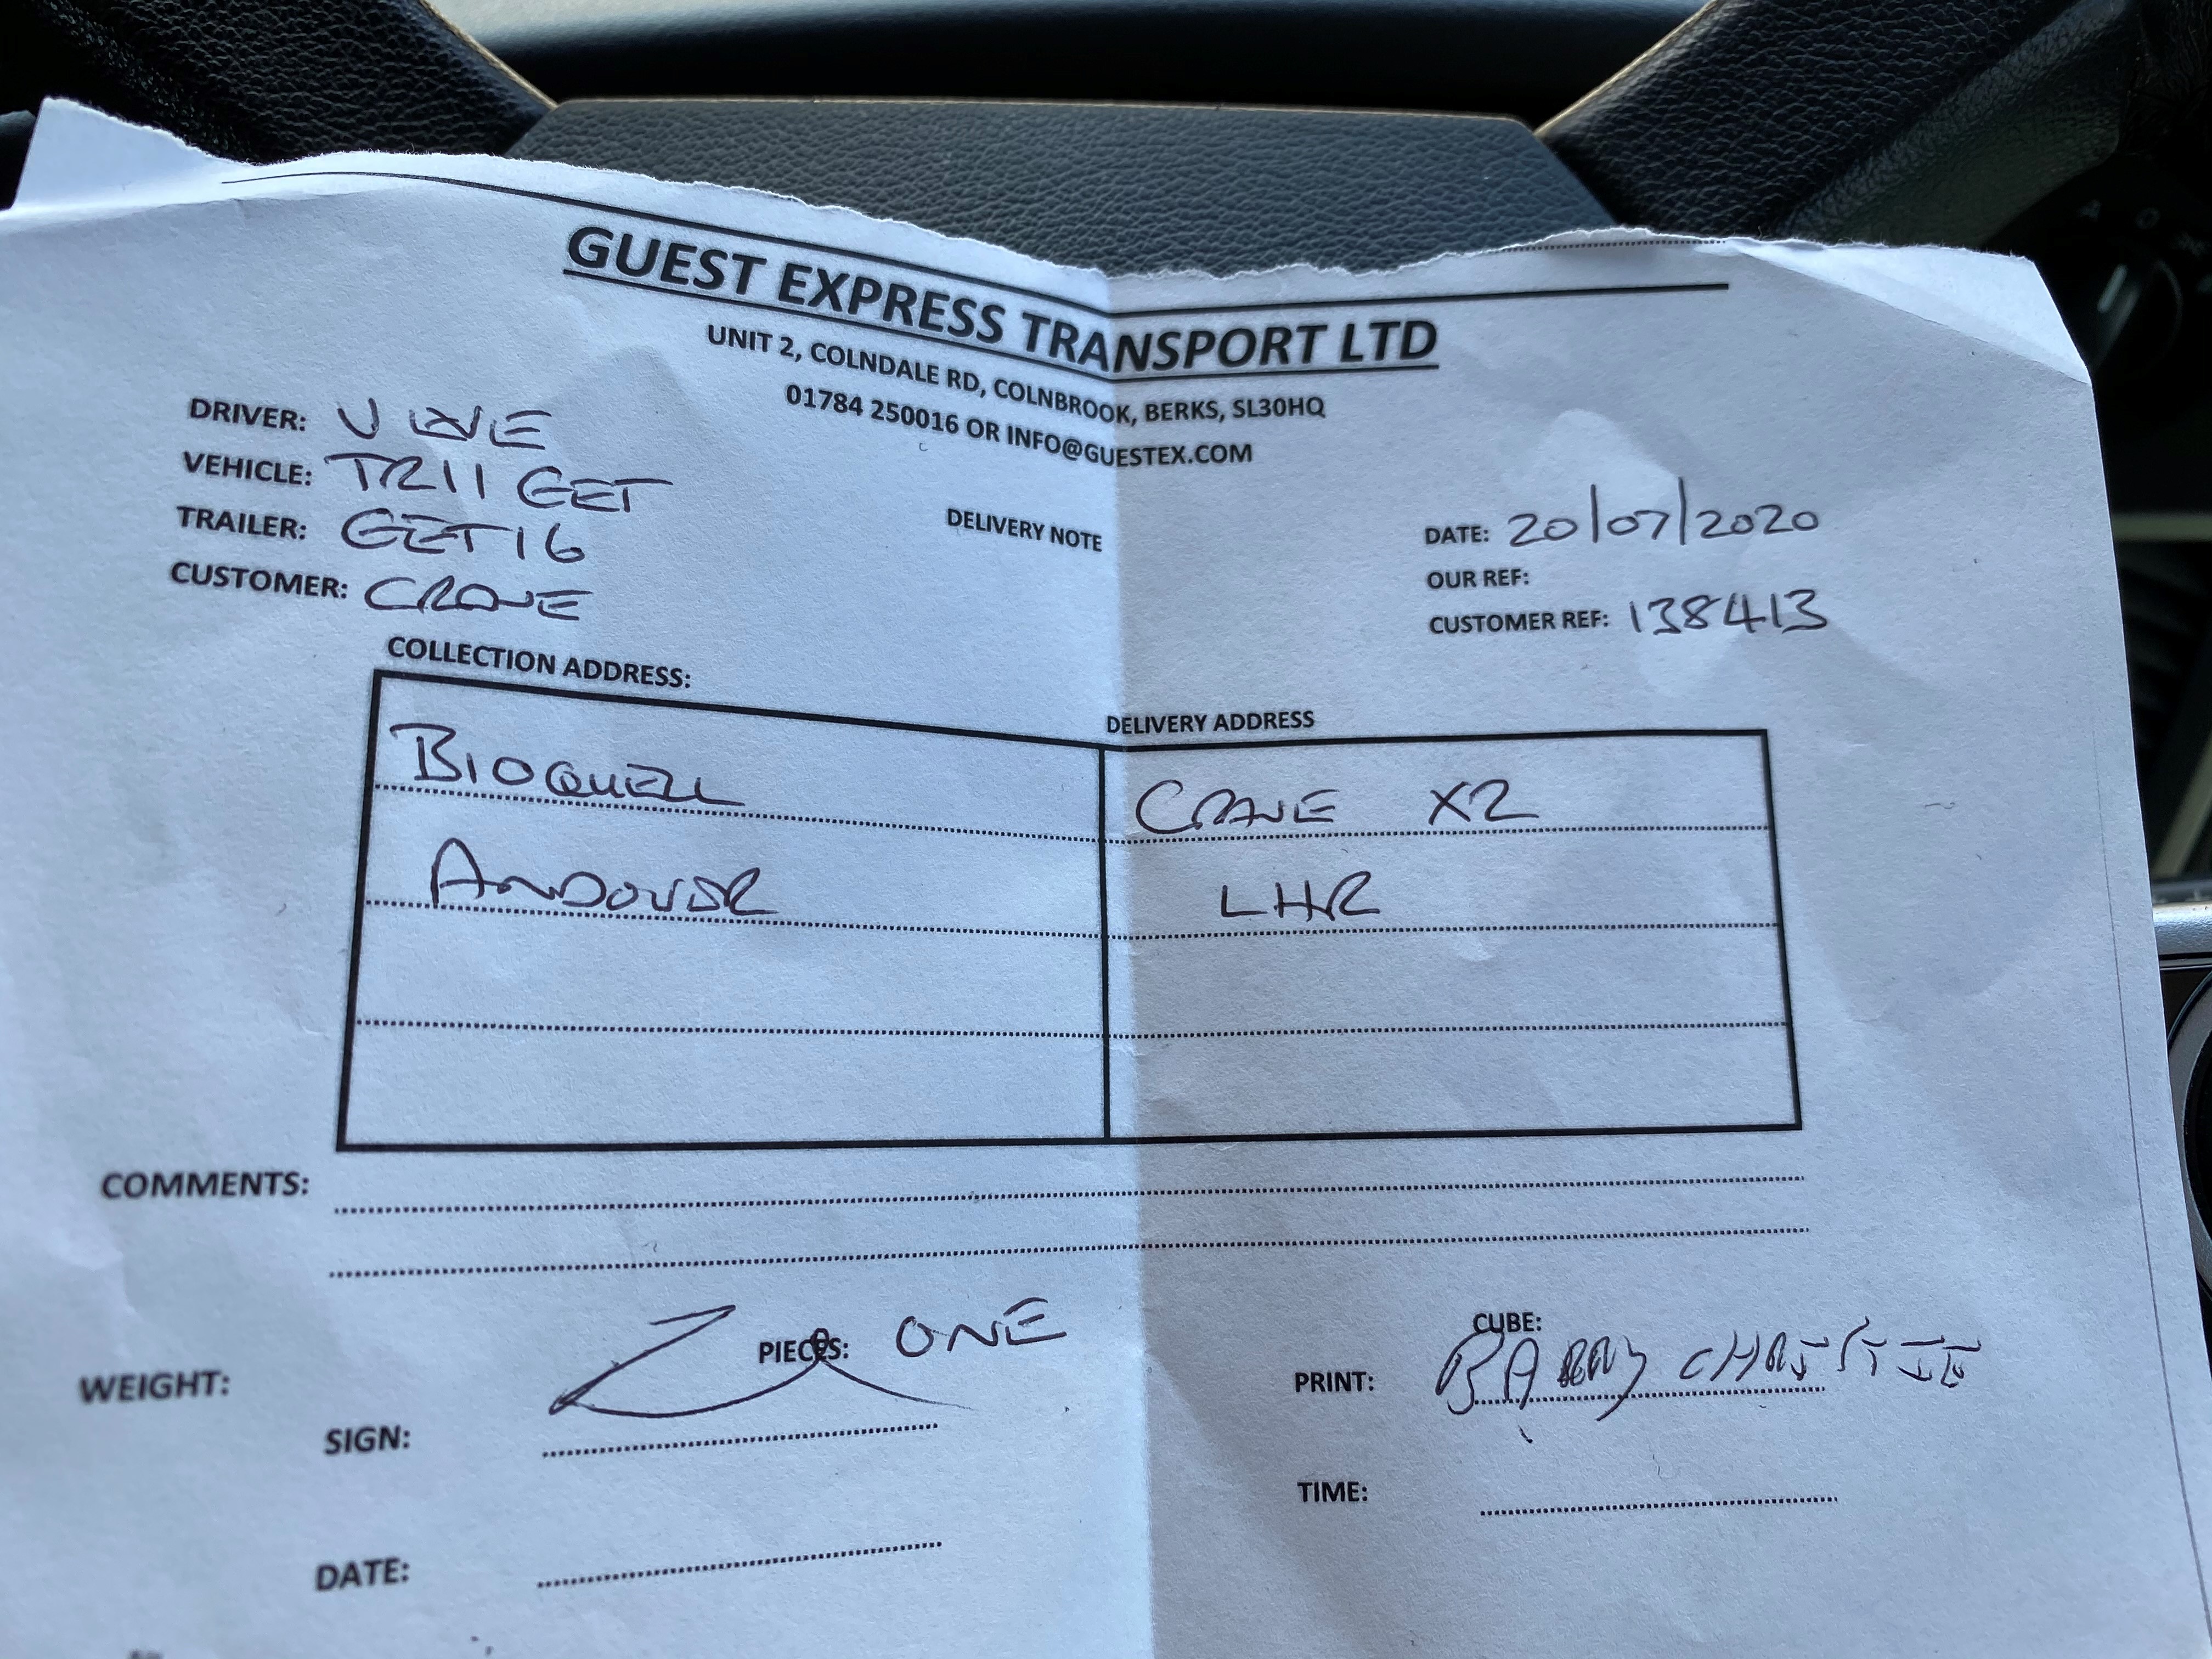 GUEST EXPRESS TRANSPORT LTD
UNIT 2, COLNDALE RD, COLNBROOK, BERKS, SL30HQ
01784 250016 OR INFO@GUESTEX.COM
DRIVER:
VEHICLE: TR11 GET
TRAILER: GET16
CUSTOMER: CRANE
DELIVERY NOTE
DATE: 20/07/2020
OUR REF:
CUSTOMER REF: 138413
COLLECTION ADDRESS:
BIOQUELL
ANDOVER
DELIVERY ADDRESS
CRANE X2
LHR
COMMENTS:
WEIGHT:
PIECES: ONE
CUBE:
SIGN:
PRINT: BARRY CHRISTIE
DATE:
TIME: